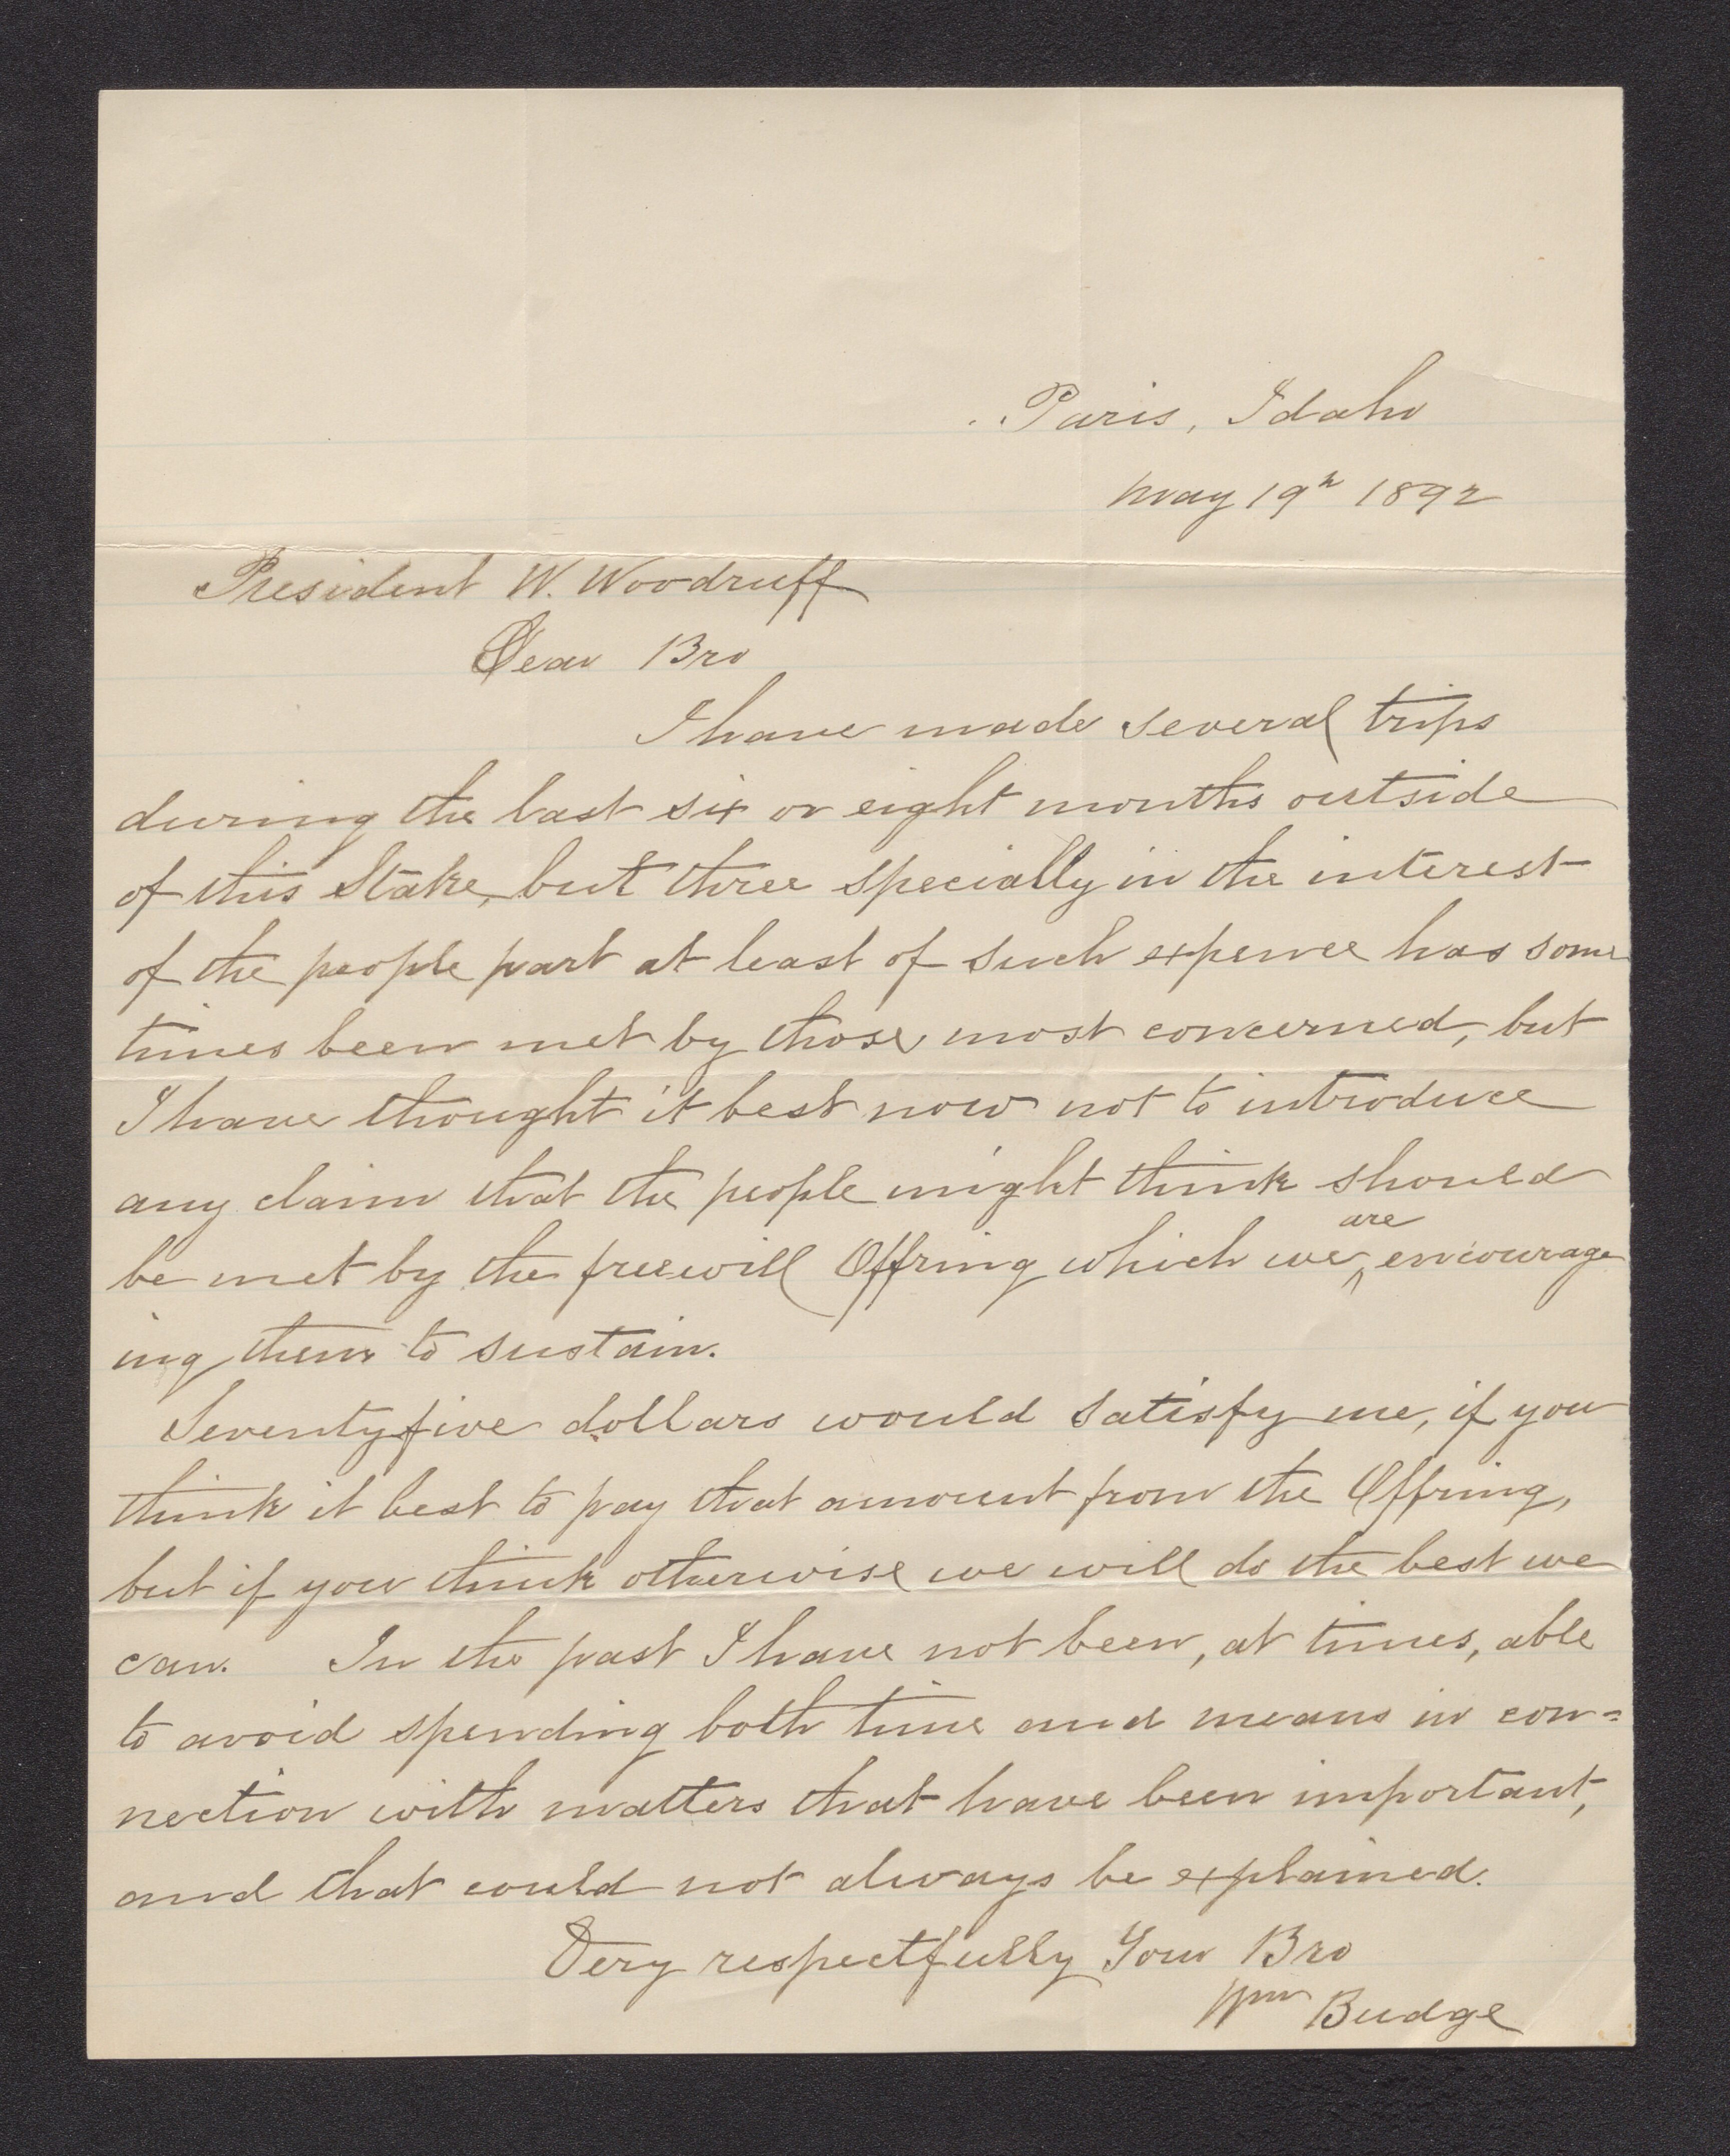 Paris, Idaho
May 19h 1892
President W. Woodruff
Dear Bro
I have made several trips
during the last six or eight months outside
of this Stake, but three specially in the interest
of the people part at least of such expence has some
times been met by those most concerned, but
I have thought it best now not to introduce
any claim that the people might think should
are
be met by the freewill Offring which we ^ encourage
ing them to sustain.
Seventyfive dollars would satisfy me, if you
think it best to pay that amount from the Offring,
but if you think otherwise we will do the best we
can. In the past I have not been, at times, able
to avoid spending both time and means in con=
nection with matters that have been important,
and that could not always be explained.
Very respectfully Your Bro
Wm Budge